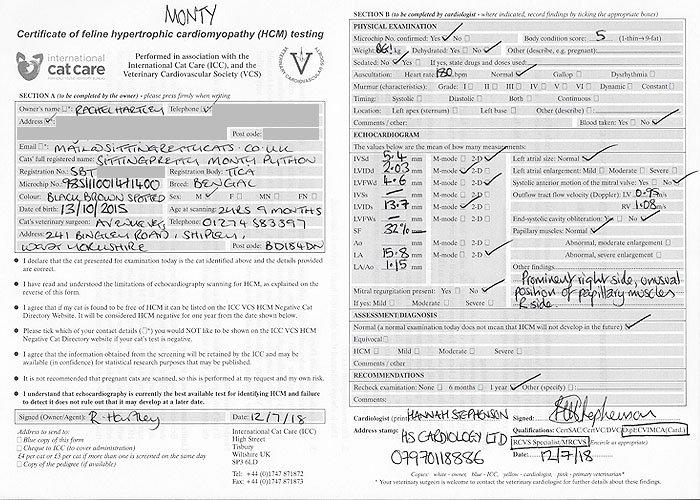 MONTY
Certificate of feline hypertrophic cardiomyopathy (HCM) testing
international
cat care
Performed in association with the
International Cat Care (ICC), and the
Veterinary Cardiovascular Society (VCS)
SECTION A (to be completed by the owner) - please press firmly when writing
Owner's name: RACHEL HARTLEY Telephone
Address
Post code:
Email: MAIL@SITTINGPRETTYCATS.CO.UK
Cats' full registered name: SITTINGPRETTY MONTY PYTHON
Registration No.: SBT Registration Body: TICA
Microchip No.: Breed: BENGAL
Colour: BLACK BROWN SPOTTED Sex: M F MN FN
Date of birth: 13/10/2015 Age at scanning: 2YRS 9 MONTHS
Cat's veterinary surgeon: Telephone: 01274 583397
Address: 241 BINGLEY ROAD, SHIPLEY,
WEST YORKSHIRE Post code: BD184DN
I declare that the cat presented for examination today is the cat identified above and the details provided
are correct.
I have read and understood the limitations of echocardiography scanning for HCM, as explained on the
reverse of this form.
I agree that if my cat is found to be free of HCM it can be listed on the ICC VCS HCM Negative Cat
Directory Website. It will be considered HCM negative for one year from the date shown below.
Please tick which of your contact details (□*) you would NOT like to be shown on the ICC VCS HCM
Negative Cat Directory website if your cat's test is negative.
I agree that the information obtained from the screening will be retained by the ICC and may be
available (in confidence) for statistical research purposes that may be published.
It is not recommended that pregnant cats are scanned, so this is performed at my request and my own risk.
I understand that echocardiography is currently the best available test for identifying HCM and failure
to detect it does not rule out that it may develop at a later date.
Signed (Owner/Agent): R Hartley Date: 12/7/18
Address to send to:
Blue copy of this form
Cheque to ICC (to cover administration)
£4 per cat or £3 per cat if more than one is screened on the same day
Copy of the pedigree (if available)
International Cat Care (ICC)
High Street
Tisbury
Wiltshire UK
SP3 6LD
Tel: +44 (0)1747 871872
Fax: +44 (0)1747 871873
SECTION B (to be completed by cardiologist - where indicated, record findings by ticking the appropriate boxes)
PHYSICAL EXAMINATION
Microchip No. confirmed: Yes No Body condition score: 5 (1-thin→9-fat)
Weight kg Dehydrated: Yes No Other (describe, e.g. pregnant):
Sedated: No Yes If yes, state drugs and doses used:
Auscultation: Heart rate 180 bpm Normal Gallop Dysrhythmia
Murmur (characteristics): Grade: I II III IV V VI Dynamic Constant
Timing: Systolic Diastolic Both Continuous
Location: Left apex (sternum) Left base Other (describe):
Comments / other: Blood taken: Yes No
ECHOCARDIOGRAM
The values below are the mean of how many measurements:
IVSd 5.4 mm M-mode 2-D Left atrial size: Normal
LVIDd mm M-mode 2-D Left atrial enlargement: Mild Moderate Severe
LVFWd 4.6 mm M-mode 2-D Systolic anterior motion of the mitral valve: Yes No
IVSs – mm M-mode 2-D Outflow tract flow velocity (Doppler): LV 0.97 m/s
LVIDs 13.7 mm M-mode 2-D RV 1.08 m/s
LVFWs – mm M-mode 2-D End-systolic cavity obliteration: Yes No
SF 32% M-mode 2-D Papillary muscles: Normal
Ao mm M-mode 2-D Abnormal, moderate enlargement
LA 15.8 mm M-mode 2-D Abnormal, severe enlargement
LA/Ao 1.15 Other findings
Prominent right side, unusual
position of papillary muscles
R side
Mitral regurgitation present: Yes No
If yes: Mild Moderate Severe
ASSESSMENT/DIAGNOSIS
Normal (a normal examination today does not mean that HCM will not develop in the future)
Equivocal
HCM Mild Moderate Severe
Comments / other
RECOMMENDATIONS
Recheck examination: None 6 months 1 year Other (specify):
Comments:
Cardiologist (print) HANNAH STEPHENSON Signed: HStephenson
Address stamp: HS CARDIOLOGY LTD Qualifications: CertSAC/CertVC/DVC/DipECVIMCA(Card.)
RCVS Specialist/MRCVS (Encircle as appropriate)
07970118886 Date: 12/7/18
Copies: white - owner, blue - ICC, yellow - cardiologist, pink - primary veterinarian*
* Your veterinary surgeon is welcome to contact the veterinary cardiologist for further details about these findings.